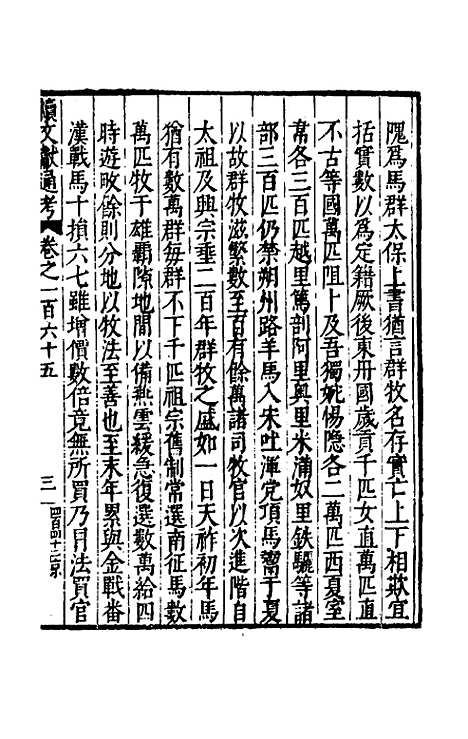 隗爲馬群太保上書猶言群牧名存實亡上下相欺宜
括實數以爲定籍厥後東丹國歲貢千匹女直萬匹直
不古等國萬匹阻卜及吾獨婉惕隐各二萬匹西夏室
韋各三百匹越里篤剖阿里奧里米蒲奴里鉄驪等諸
部三百匹仍禁朔州路羊馬入宋吐渾党項馬鬻于夏
以故群牧滋繁數至百有餘萬諸司牧官以次進階自
太祖及興宗垂二百年群牧之盛如一日天祚初年馬
猶有數萬群每群不下千匹祖宗舊制常選南征馬數
萬匹牧于雄霸隙地間以備燕雲緩急復選數萬給四
時遊畋餘則分地以牧法至善也至末年累與金戰番
漢戰馬十損六七雖增價數倍竟無所買乃冐法買官
續文獻通考 卷之一百六十五 三